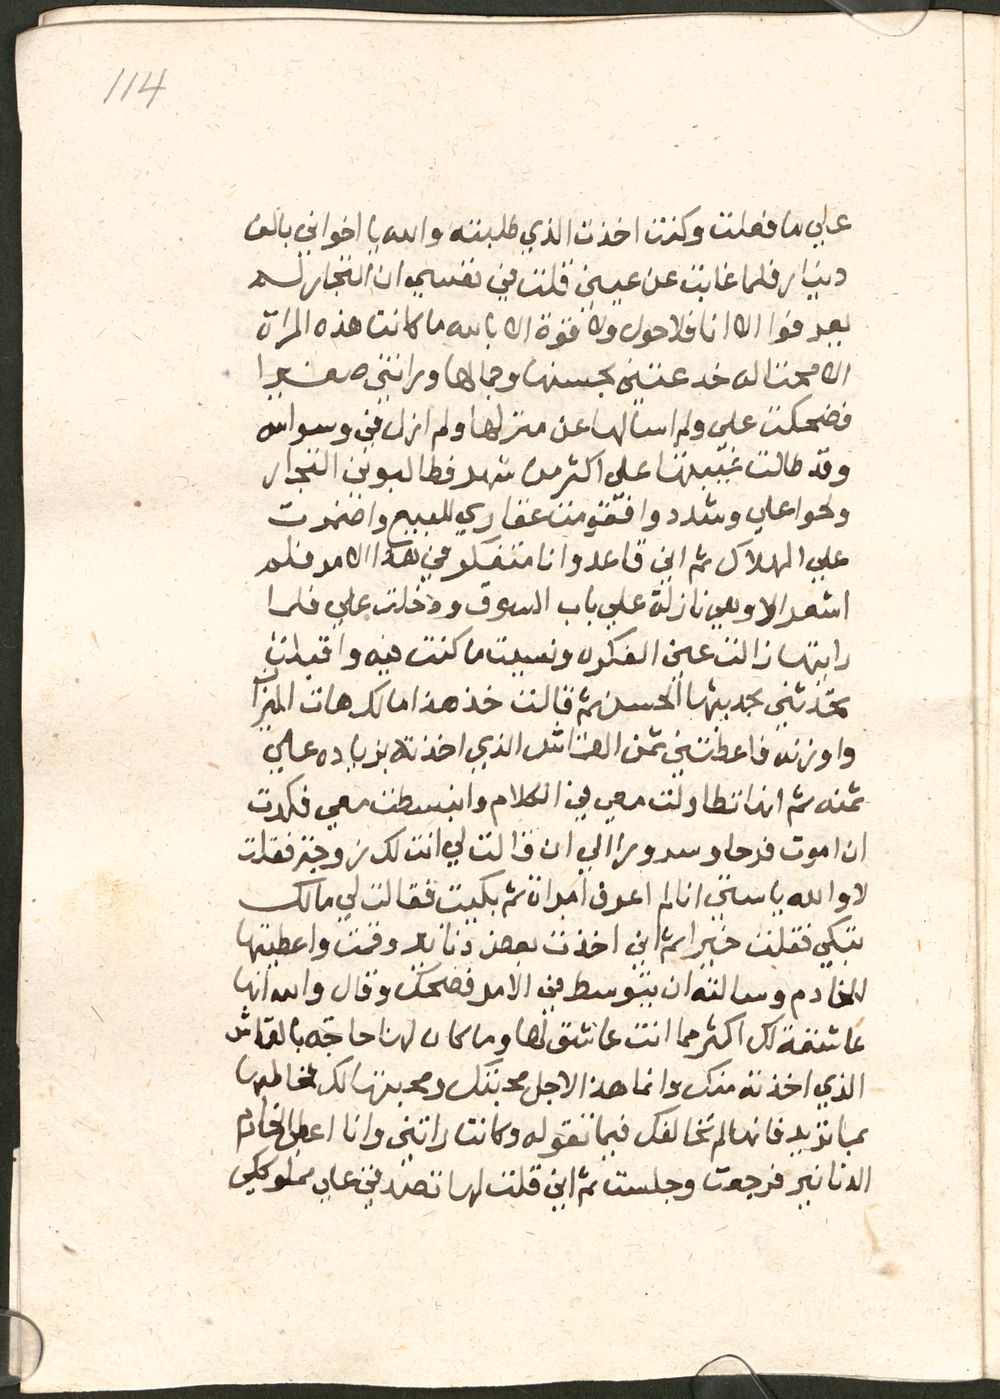 114
علي ما فعلت وكنت اخذت الذي طلبته والله يا اخواني بالف
دينار فلما غابت عن عيني قلت في نفسي ان التجار لم
يعرفوا الا انا فلا حول ولا قوة الا بالله ما كانت هذه المراة
الا محتاله خدعتني بحسنها وجمالها وراتني صغيرا
فضحكت علي ولم اسالها عن منزلها ولم ازل في وسواس
وقد طالت غيبتها علي اكثر من شهر فطالبوني التجار
ولحوا علي وشددوا عقاري للبيع واضمرت
علي الهلاك ثم اني قاعد وانا متفكر في هذا الامر فلم
اشعر الا وهي نازلة علي باب السوق ودخلت علي فلما
رايتها زالت عني الفكره ونسيت ما كنت فيه واقبلت
تحدثني بحديثها الحسن ثم قالت خذ هذا مالك هات الميزان
واوزنه فاعطتني ثمن القماش الذي اخذته بزياده علي
ثمنه ثم انها تطاولت معي في الكلام وانبسطت معي فكدت
ان اموت فرحا وسرورا الي ان قالت لي انت لك زوجة فقلت
لا والله يا ستي انا لم اعرف امراة ثم بكيت فقالت لي مالك
تبكي فقلت خيرا ثم اني اخذت بعض دنانير وقمت واعطيتها
للخادم وسالته ان يتوسط في الامر فضحك وقال والله انها
عاشقة لك اكثر مما انت عاشق لها وما كان لها حاجة بالقماش
الذي اخذته منك وانما هذا لاجل محبتك ومحبتها لك تخاطبها
بما تريد فانها لم تخالفك فيما تقوله وكانت راتني وانا اعطي الخادم
الدنانير فرجعت وجلست ثم اني قلت لها تصدقي علي مملوككي